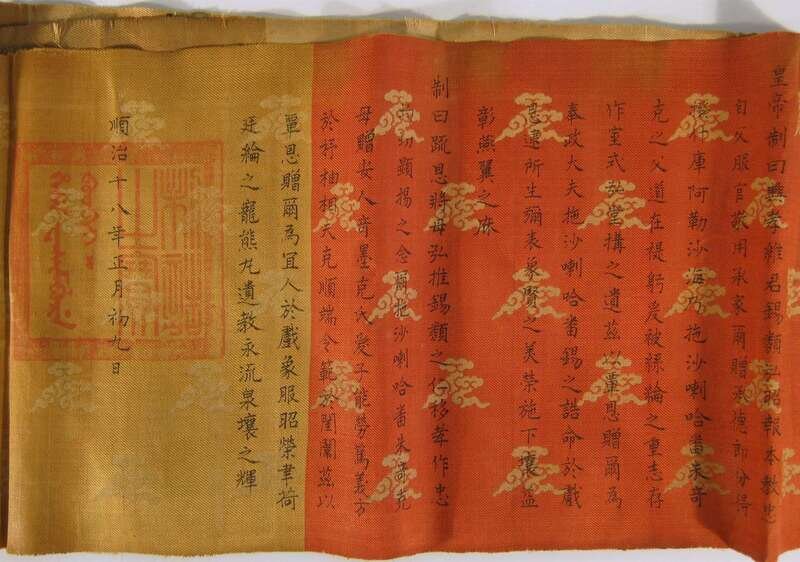 皇帝制曰興孝維君錫類弘昭報本教忠
自父服官敬用承家爾贈承德郎分得
撥什庫阿勒沙海乃拖沙喇哈番朱奇
克之父道在禔躬爰被絲綸之重志存
作室式弘堂構之遺茲以覃恩贈爾為
奉政大夫拖沙喇哈番錫之誥命於戲
恩逮所生彌表象賢之美榮施下壤益
彰燕翼之庥
制曰疏恩將母弘推錫類之仁移孝作忠
勖顯揚之念爾拖沙喇哈番朱奇克
母贈安人奇墨克氏愛子能勞篤義方
於杼柚相夫克順端令範於閨闈茲以
覃恩贈爾為宜人於戲象服昭榮聿荷
廷綸之寵熊丸遺教永流泉壤之輝
順治十八年正月初九日